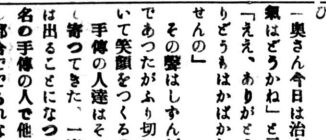 奥さん今日は治
氣はどうかね」と
「ええ、ありがと
りどうもはかばか
せんの」
その聲はしずん
であつたがふり切
いて笑顔をつくる
手傳の人達はそ
寄つてきた、一
は出ることになつ
名の手傳の人で他